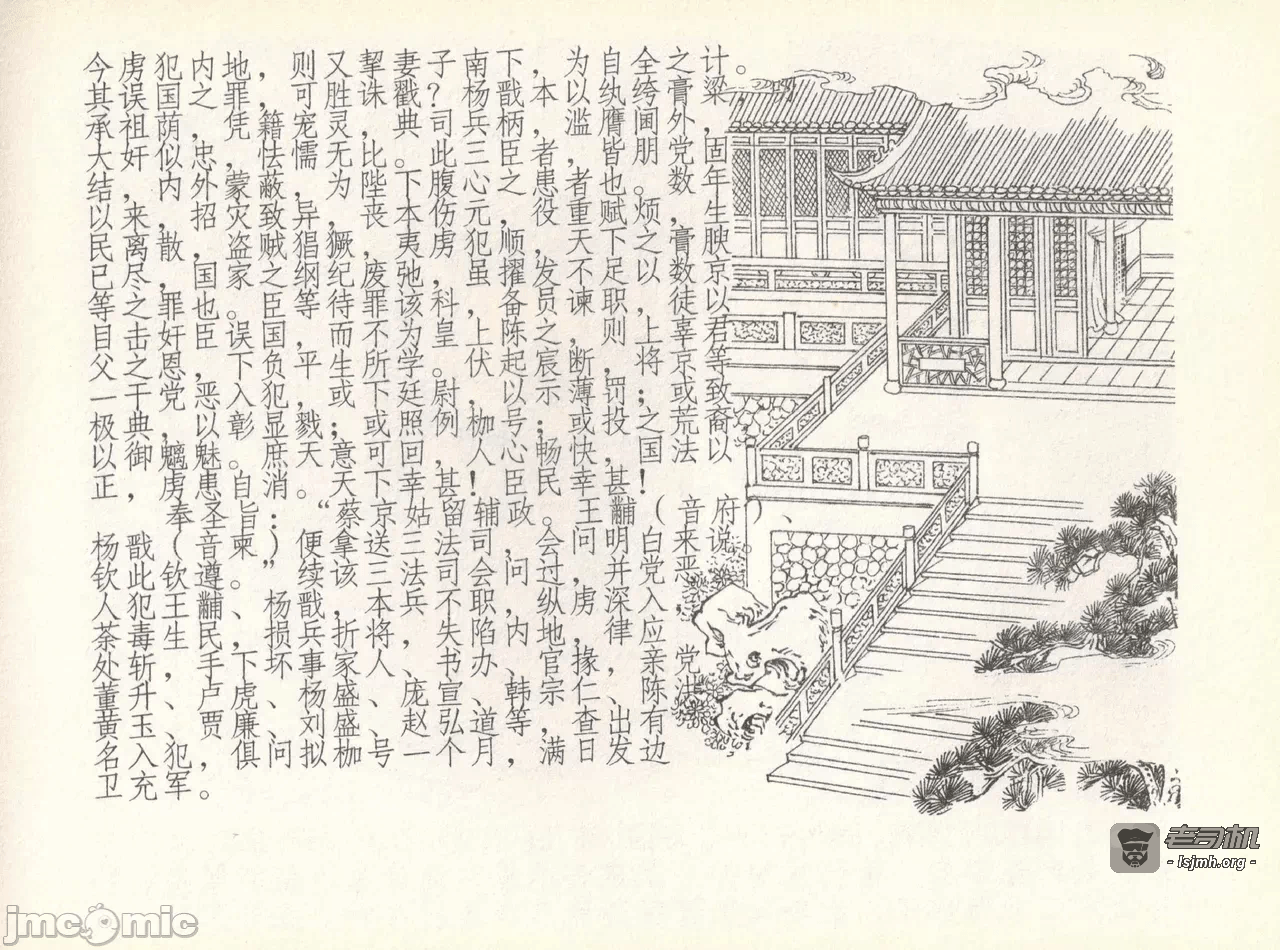 今虏犯内地，则又挈妻子南下，为自全之计。
其误国之罪，可胜诛戳？杨戬本以纨绔膏粱，叨
承祖荫，凭籍宠灵，典司兵柄，滥膺阃外，
大奸似忠，怯懦无比。此三者皆朋党固
结，内外蒙蔽，为陛下腹心之患者也。数年
以来，招灾致异，丧本伤元，役重赋烦，生
民离散，盗贼猖獗，夷虏犯顺，天下之膏腴
已尽，国家之纲纪废弛，虽擢发不足以数京
等之罪也。臣等待罪该科，备员谏职，徒以
自击奸误国，而不为皇上陈之，则上辜君
父之恩，下负平生所学。伏起宸断，将京等
一干党恶人犯，或下廷尉，以示薄罚；或致
极典，以彰显戮；或照例枷号；或投之荒裔，
以御魑魅。庶天意可回，人心畅快，国法以
正，虏患自消。天下幸甚！臣民幸甚！
奉圣旨：“蔡京姑留辅政。王黼（音府）、
杨戬（音柬）便拿送三法司，会问明白来说。
钦此钦遵。”续该三法司会问过，并党恶
人犯王黼、杨戬，本兵不职，纵虏深入，
荼毒生民，损兵折将，失陷内地，律应
处斩；手下坏事家人、书办、官掾、亲党，
董升、卢虎、杨盛、庞宣、韩宗仁、陈洪、
黄玉、贾廉、刘盛、赵弘道等，查出有
名入犯，俱问拟枷号一个月，满日发边
卫充军。
老司机
- lsjmh.org -
jmcomic